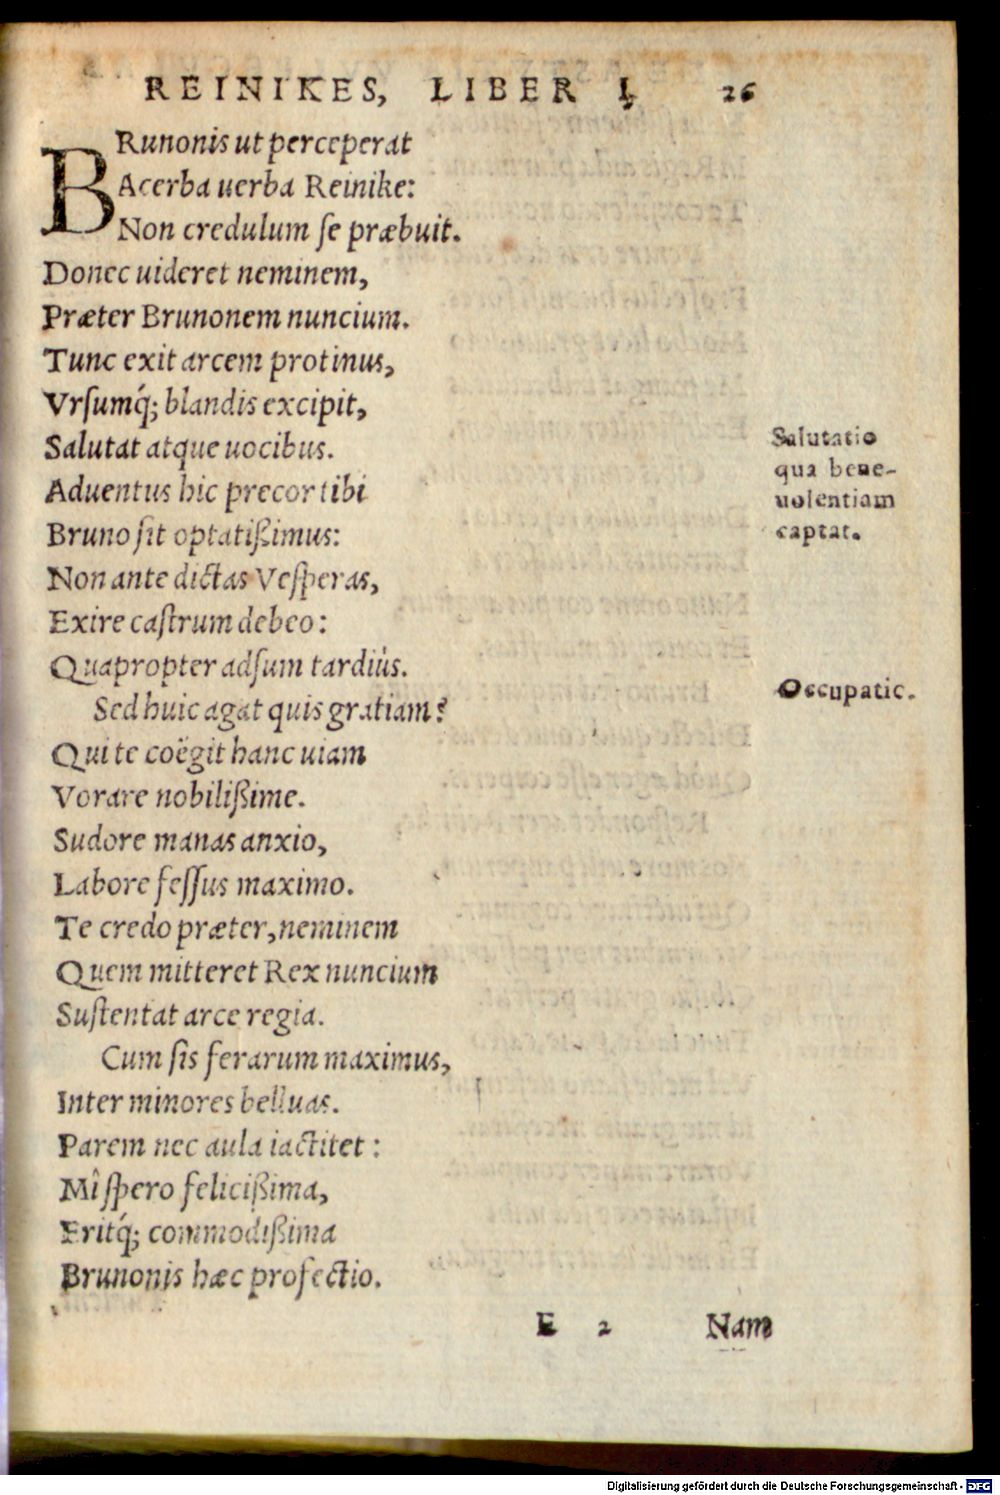 REINIKES, LIBER I. 26
BRunonis ut perceperat
Acerba uerba Reinike:
Non credulum se præbuit.
Donec uideret neminem,
Præter Brunonem nuncium.
Tunc exit arcem protinus,
Vrsumq́; blandis excipit,
Salutat atque uocibus.
Aduentus hic precor tibi
Bruno sit optatißimus:
Non ante dictas Vesperas,
Exire castrum debeo:
Quapropter adsum tardiùs.
Sed huic agat quis gratiam?
Qui te coëgit hanc uiam
Vorare nobilißime.
Sudore manas anxio,
Labore fessus maximo.
Te credo præter, neminem
Quem mitteret Rex nuncium
Sustentat arce regia.
Cum sis ferarum maximus,
Inter minores belluas.
Parem nec aula iactitet:
Mî spero felicißima,
Eritq́; commodißima
Brunonis hæc profectio.
Salutatio
qua bene-
uolentiam
captat.
Occupatio.
E 2 Nam
Digitalisierung gefördert durch die Deutsche Forschungsgemeinschaft - DFG